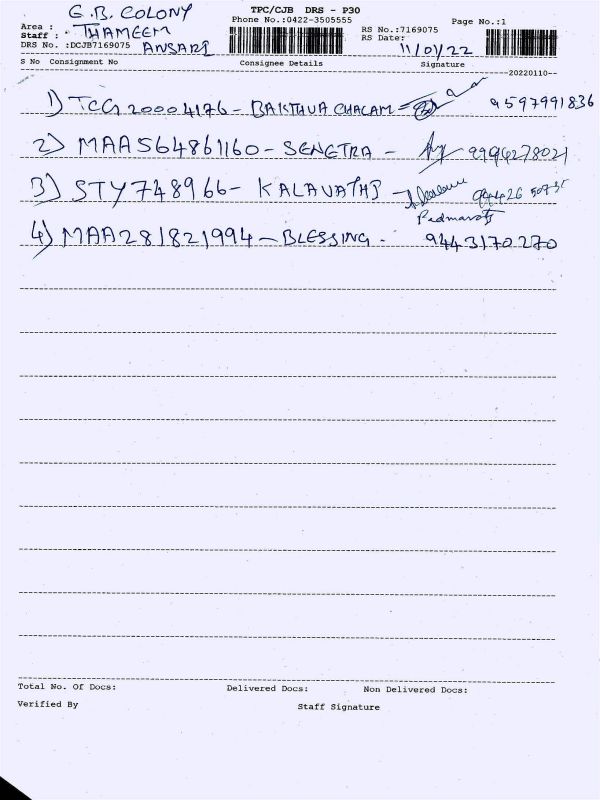 TPC/CJB DRS - P30
Area : G.B. COLONY Phone No.:0422-3505555 Page No.:1
Staff : THAMEEM RS No.:7169075
DRS No. :DCJB7169075 ANSARI RS Date: 11/01/22
S No Consignment No Consignee Details Signature
20220110--
1) TCG20004176 - BAKTHUA CHALAM 9597991836
2) MAA564861160 - SENETRA - 9994278021
3) STY748966 - KALAVATHI - 994426 50735
Padmavathi
4) MAA281821994 - BLESSING - 9443170270
Total No. Of Docs: Delivered Docs: Non Delivered Docs:
Verified By Staff Signature